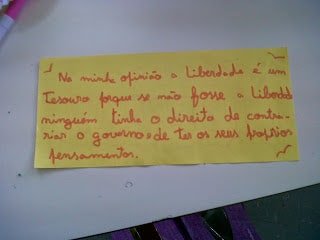 Na minha opinião a Liberdade é um
Tesouro porque se não fosse a Liberdade
ninguém tinha o direito de contra-
riar o governo e de ter os seus proprios
pensamentos.